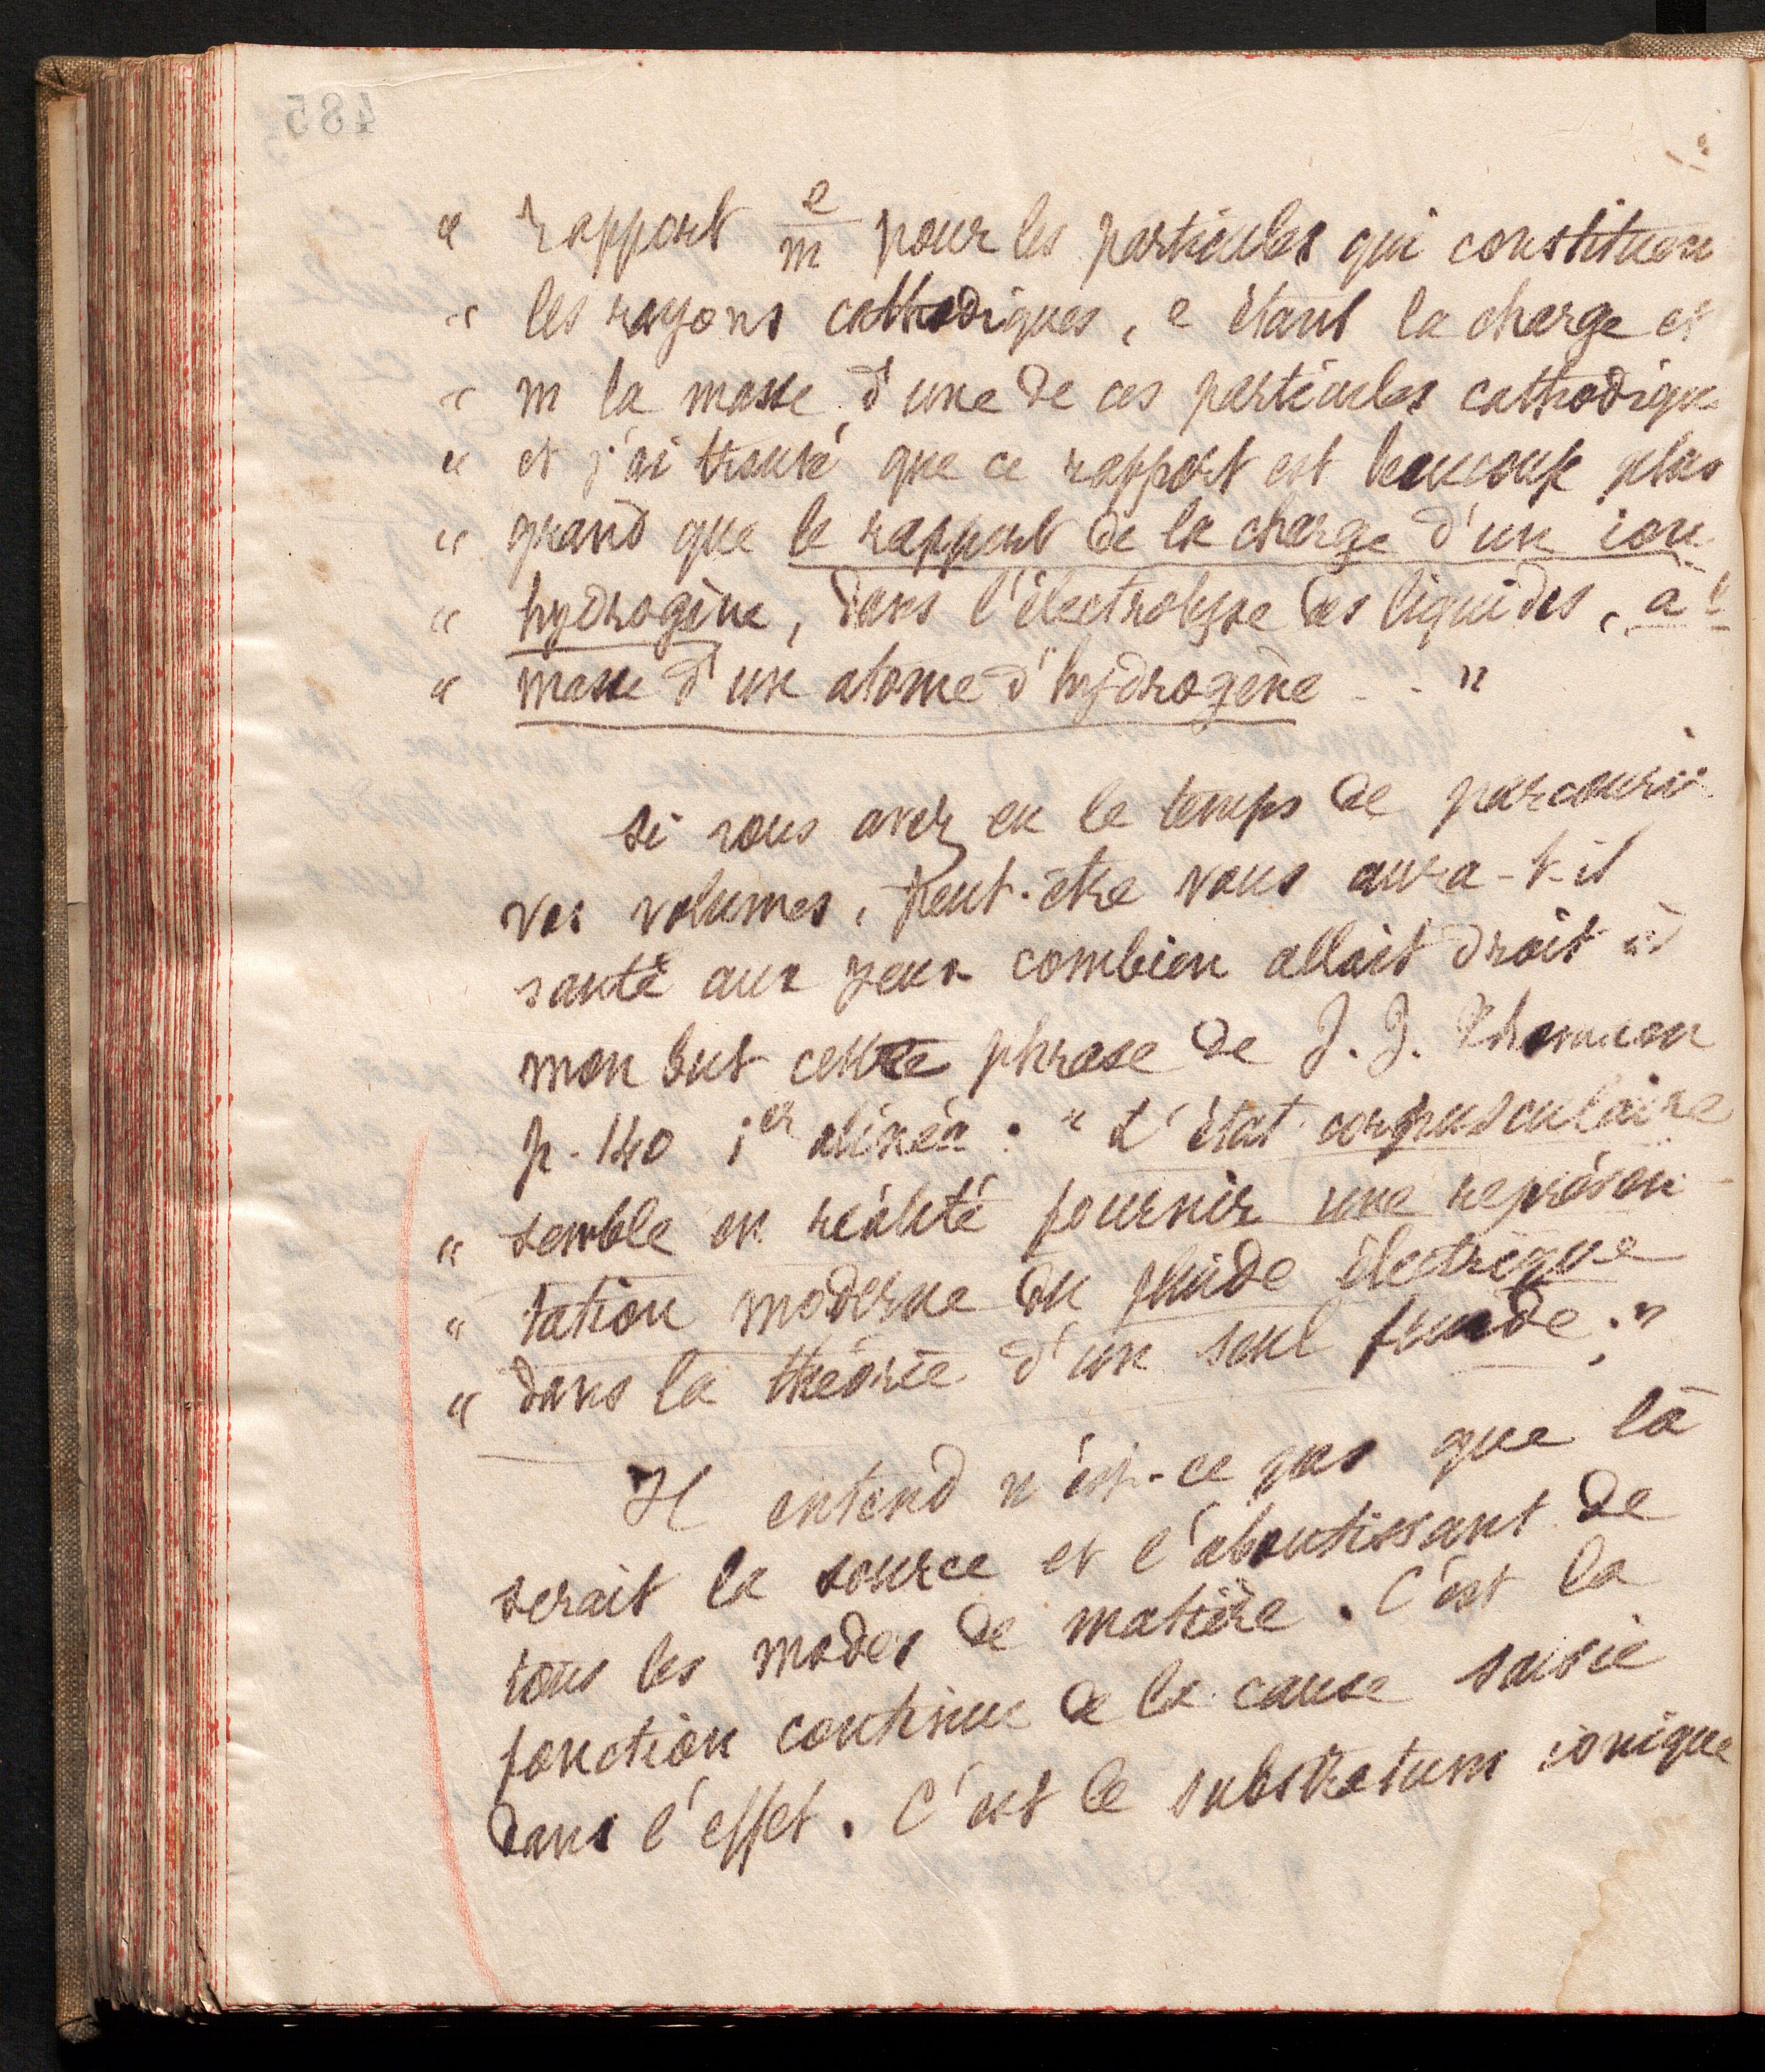 485
" rapport e/m pour les particules qui constituen
" les rayons cathodiques, e étant la charge et
" m la masse d'une de ces particules cathodique
" et j'ai trouvé que ce rapport est beaucoup plus
" grand que le rapport de la charge d'un ion
" hydrogène, dans l'électrolyse des liquides, à l
" masse d'un atome d'hydrogène - - "
Si vous avez eu le temps de parcourir
vos volumes, peut-être vous aura-t-il
sauté aux yeux combien allait droit à
mon but cette phrase de J. J. Thomson
p. 140 1er alinéa : " L'état corpusculaire
" semble en réalité fournir une représen-
" tation moderne du fluide électrique
" dans la théorie d'un seul fluide. "
Il entend n'est-ce pas que là
serait la source et l'aboutissant de
tous les modes de matière. C'est la
fonction continue de la cause saisie
dans l'effet. C'est le substratum ionique